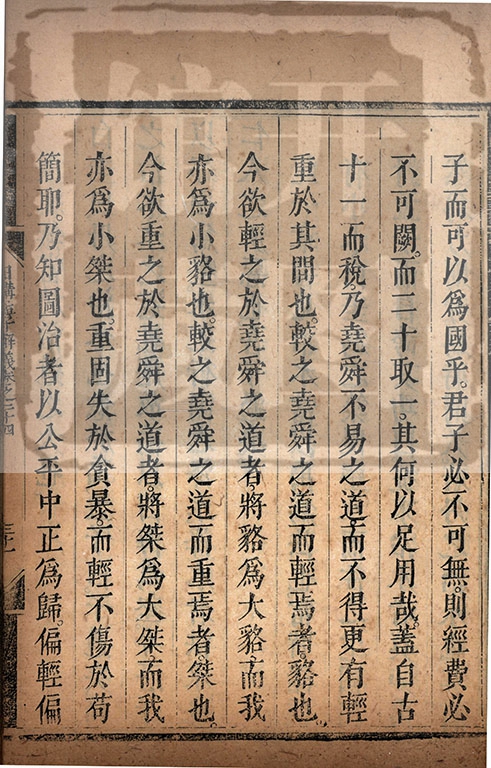 子而可以爲國乎。君子必不可無。則經費必
不可闕。而二十取一。其何以足用哉。蓋自古
十一而稅。乃堯舜不易之道。而不得更有輕
重於其間也。較之堯舜之道而輕焉者。貉也。
今欲輕之於堯舜之道者。將貉爲大貉。而我
亦爲小貉也。較之堯舜之道而重焉者桀也。
今欲重之於堯舜之道者。將桀爲大桀而我
亦爲小桀也。重固失於貪暴。而輕不傷於苟
簡耶。乃知圖治者以公平中正爲歸。偏輕偏
日講四書解義